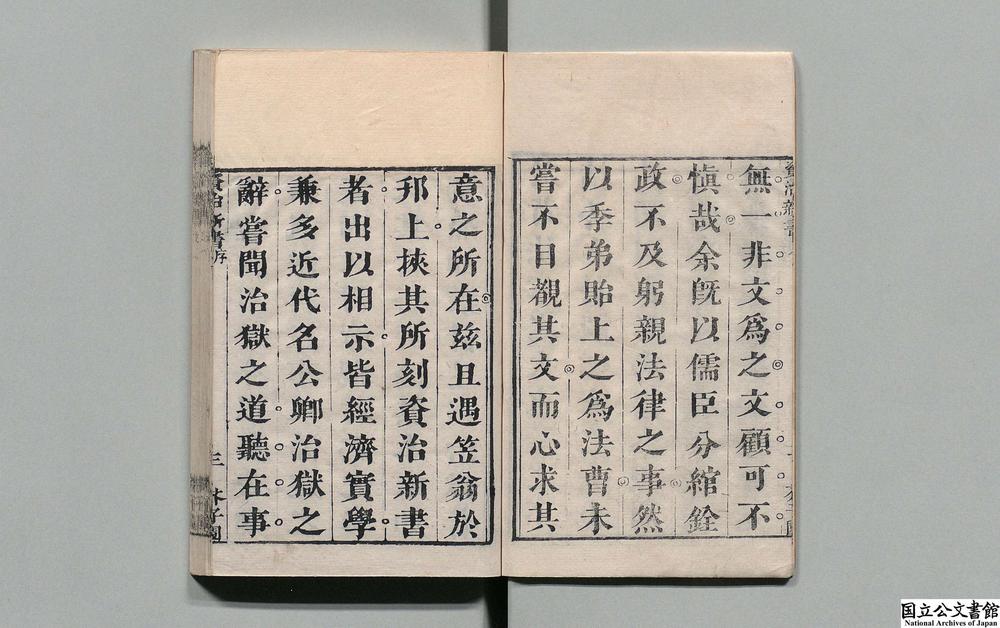 無一非文爲之文顧可不
愼哉余旣以儒臣分綰銓
政不及躬親法律之事然
以季弟貽上之爲法曹未
嘗不目覩其文而心求其
意之所在兹且遇笠翁於
邗上挾其所刻資治新書
者出以相示皆經濟實學
兼多近代名公卿治獄之
辭嘗聞治獄之道聽在事
資治新書序
三
芥子園
国立公文書館
National Archives of Japan